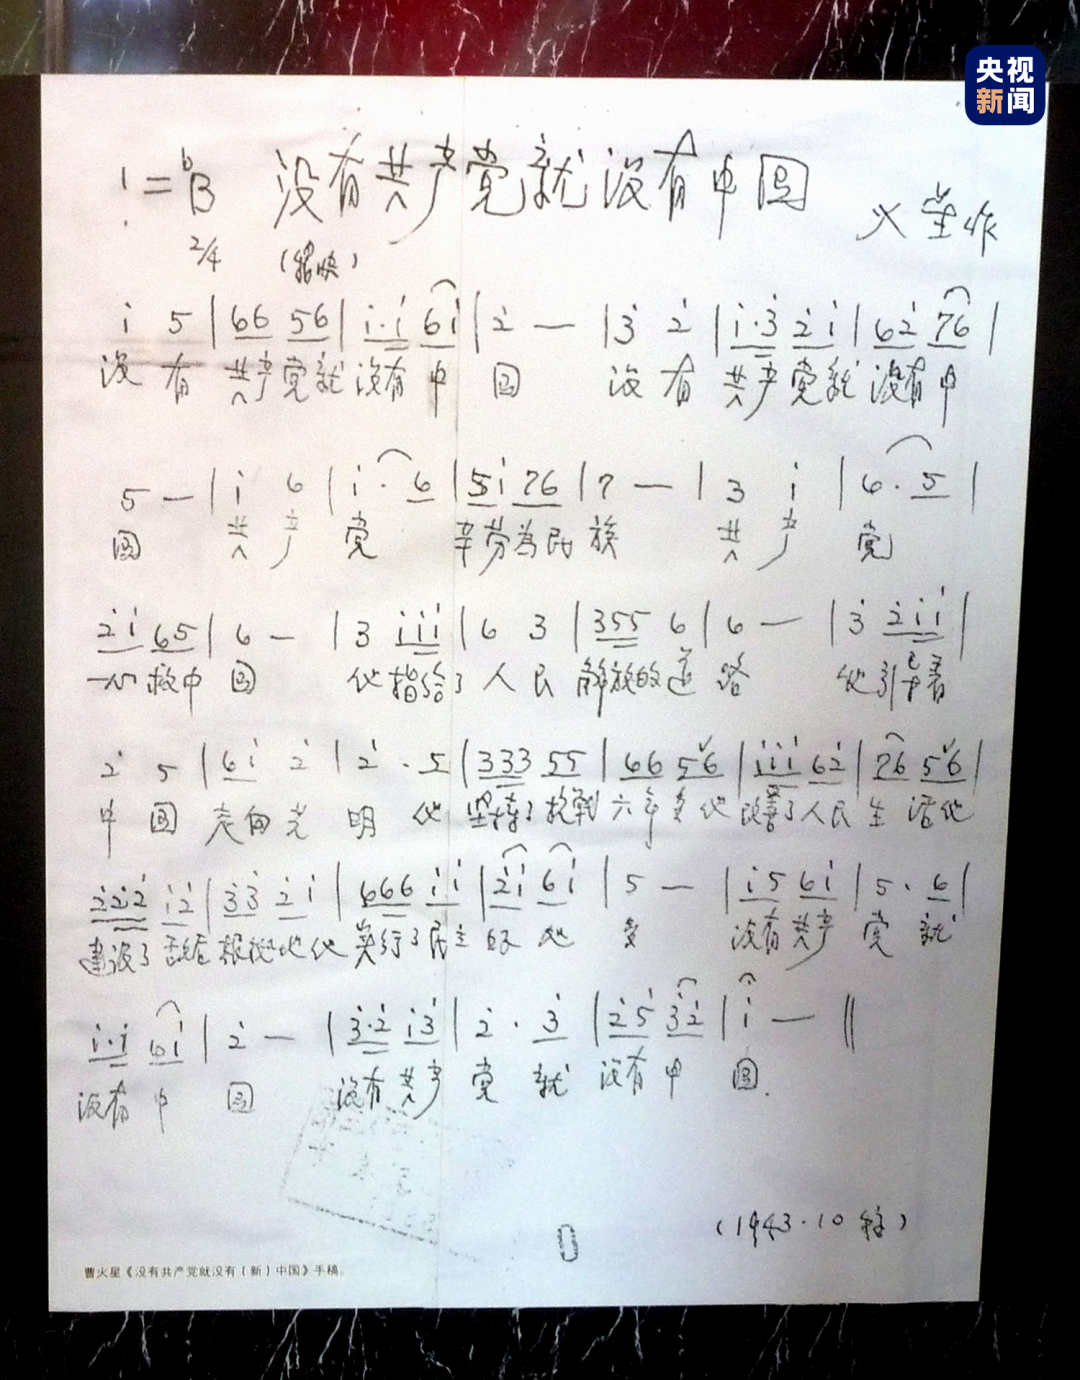 央视
新闻
1=ᵇB 没有共产党就没有中国
火星作
2/4 (稍快)
i 5 | 66 56 | i·i 6i | 2 — | 3 2 | i·3 2i | 62 76 |
没 有 共产党就 没有 中 国 没 有 共产党就 没有 中
5 — | i 6 | i · 6 | 5i 76 | 7 — | 3 i | 6 · 5 |
国 共 产 党 辛劳为民 族 共 产 党
2i 65 | 6 — | 3 iii | 6 3 | 355 6 | 6 — | 3 2ii |
一心救中 国 他指给了 人 民 解放的道 路 他引导着
2 5 | 6i 2 | 2 · 5 | 333 55 | 66 56 | iii 62 | 76 56 |
中 国 走向光 明 他 坚持了抗战 六年多他 改善了人民 生 活他
222 i2 | 33 2i | 666 ii | 2i 6i | 5 — | i5 6i | 5 · 6 |
建设了敌后 根据地他 实行了民主 好 处 多 没有共产 党 就
i·i 6i | 2 — | 3·2 i3 | 2 · 3 | 25 32 | i — ‖
没有 中 国 没有共产 党 就 没有 中 国.
(1943.10 稿)
曹火星《没有共产党就没有(新)中国》手稿。